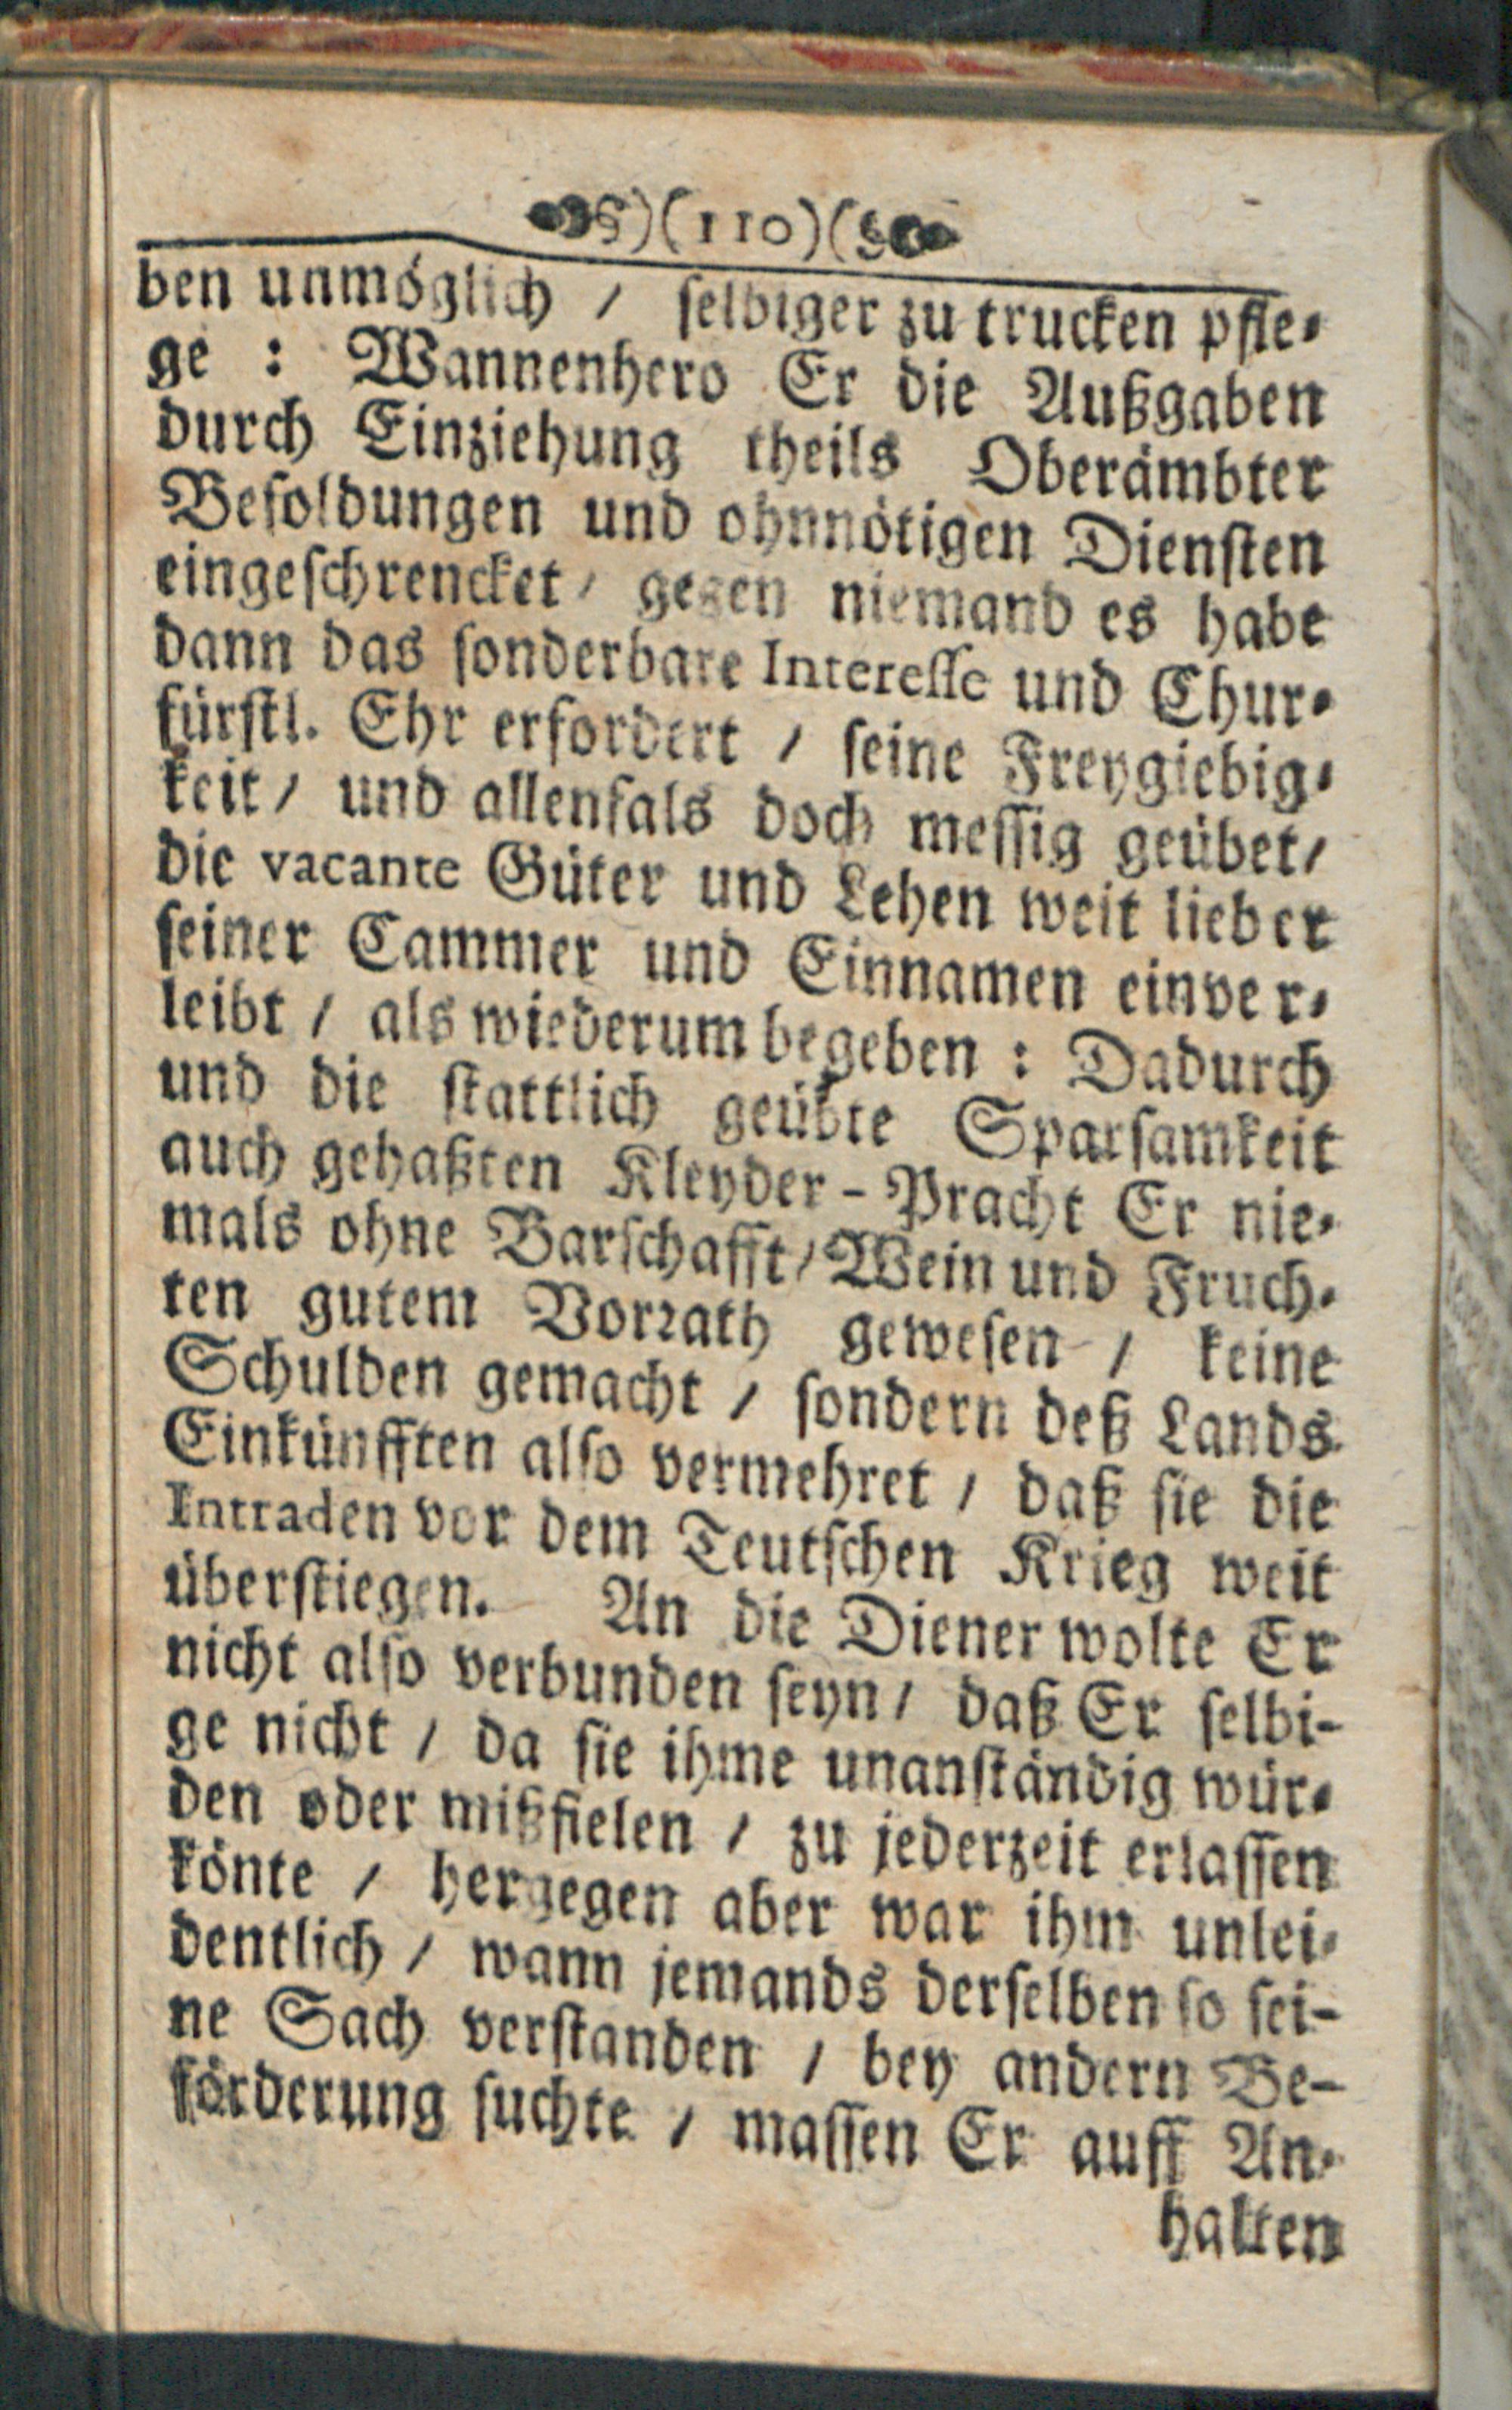 )(110)(
ben unmöglich / ſelbiger zu trucken pfle⸗
ge : Wannenhero Er die Außgaben
durch Einziehung theils Oberämbter
Beſoldungen und ohnnötigen Dienſten
eingeſchrencket / gegen niemand es habe
dann das ſonderbare Intereſſe und Chur⸗
fürſtl. Ehr erfordert / ſeine Freygiebig⸗
keit / und allenfals doch meſſig geübet /
die vacante Güter und Lehen weit lieber
ſeiner Cammer und Einnamen einver⸗
leibt / als wiederum begeben : Dadurch
und die ſtattlich geübte Sparſamkeit
auch gehaßten Kleyder - Pracht Er nie⸗
mals ohne Barſchafft / Wein und Fruch⸗
ten gutem Vorꝛath geweſen / keine
Schulden gemacht / ſondern deß Lands
Einkünfften alſo vermehret / daß ſie die
Intraden vor dem Teutſchen Krieg weit
überſtiegen. An die Diener wolte Er
nicht alſo verbunden ſeyn / daß Er ſelbi-
ge nicht / da ſie ihme unanſtändig wür⸗
den oder mißfielen / zu jederzeit erlaſſen
könte / hergegen aber war ihm unlei⸗
dentlich / wann jemands derſelben ſo ſei-
ne Sach verſtanden / bey andern Be-
förderung ſuchte / maſſen Er auff An⸗
halten